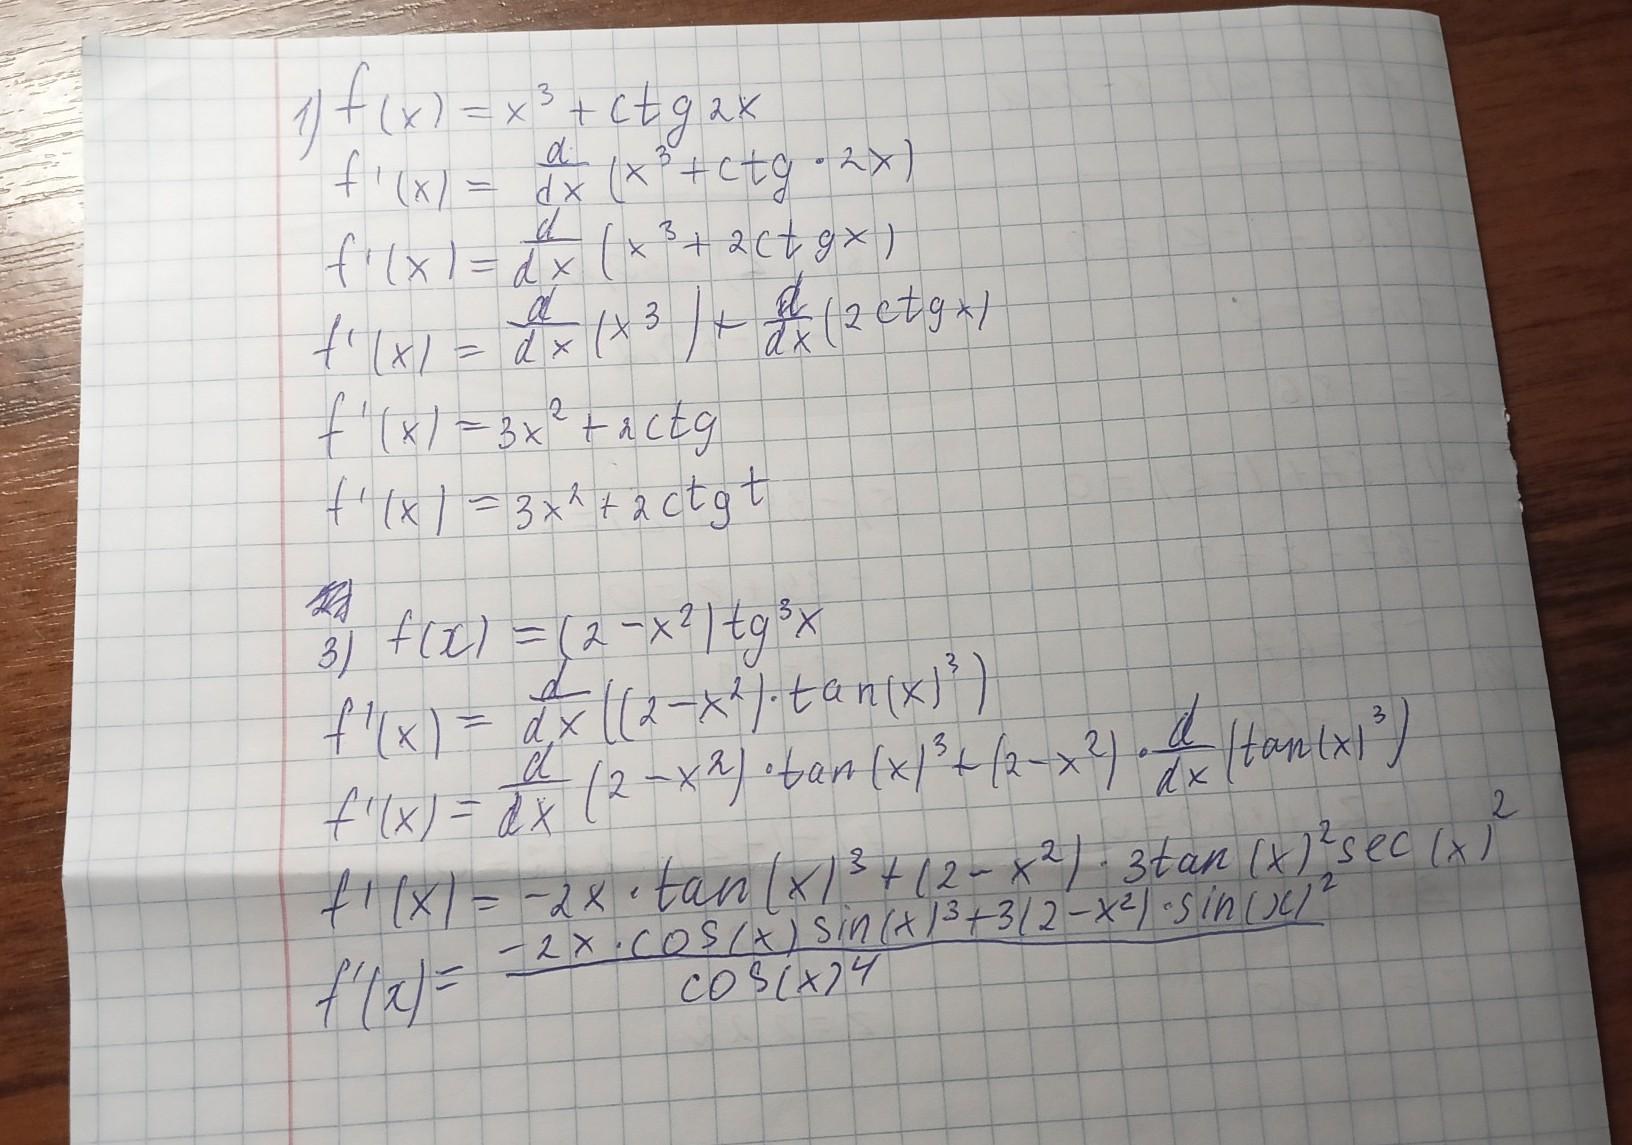 1) f(x) = x³ + ctg 2x
f'(x) = d/dx (x³ + ctg · 2x)
f'(x) = d/dx (x³ + 2ctgx)
f'(x) = d/dx (x³) + d/dx (2ctgx)
f'(x) = 3x² + 2ctg
f'(x) = 3x² + 2ctgt
3) f(x) = (2 - x²) tg³x
f'(x) = d/dx ((2 - x²) · tan(x)³)
f'(x) = d/dx (2 - x²) · tan(x)³ + (2 - x²) · d/dx (tan(x)³)
f'(x) = -2x · tan(x)³ + (2 - x²) · 3tan(x)² sec(x)²
f'(x) = (-2x · cos(x) sin(x)³ + 3(2 - x²) · sin(x)²) / cos(x)4